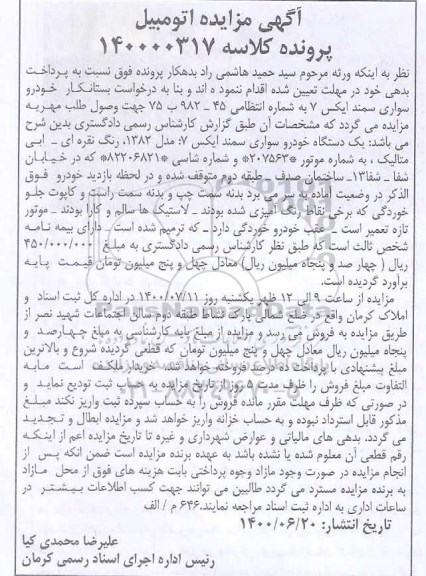 آگهی مزایده اتومبیل
پرونده کلاسه ۱۴۰۰۰۰۳۱۷
نظر به اینکه ورثه مرحوم سید حمید هاشمی راد بدهکار پرونده فوق نسبت به پرداخت
بدهی خود در مهلت تعیین شده اقدام ننموده اند و بنا به درخواست بستانکار خودرو
سواری سمند ایکس ۷ به شماره انتظامی ۴۵ - ۹۸۲ ب ۷۵ جهت وصول طلب مهریه
مزایده می گردد که مشخصات آن طبق گزارش کارشناس رسمی دادگستری بدین شرح
می باشد: یک دستگاه خودرو سواری سمند ایکس ۷: مدل ۱۳۸۲، رنگ نقره ای - آبی
متالیک ، به شماره موتور *۲۰۷۵۶۳* و شماره شاسی *۸۲۲۰۶۸۲۱* که در خیابان
شفا - شفا۱۳- ساختمان صدف - طبقه دوم متوقف شده و در لحظه بازدید خودرو فوق
الذکر در وضعیت آماده به سر می برد بدنه سمت چپ و بدنه سمت راست و کاپوت جلو
خوردگی که برخی نقاط رنگ آمیزی شده بودند - لاستیک ها سالم و کارا بودند - موتور
تازه تعمیر است - عقب خودرو خوردگی دارد - که ترمیم شده است . دارای بیمه نامه
شخص ثالث است که طبق نظر کارشناس رسمی دادگستری به مبلغ ۴۵۰/۰۰۰/۰۰۰
ریال ( چهار صد و پنجاه میلیون ریال) معادل چهل و پنج میلیون تومان قیمت پایه
برآورد گردیده است.
مزایده از ساعت ۹ الی ۱۲ ظهر یکشنبه روز ۱۴۰۰/۰۷/۱۱ در اداره کل ثبت اسناد و
املاک کرمان واقع در ضلع شمالی پارک نشاط طبقه دوم سالن اجتماعات شهید نصر از
طریق مزایده به فروش می رسد و مزایده از مبلغ پایه کارشناسی به مبلغ چهارصد و
پنجاه میلیون ریال معادل چهل و پنج میلیون تومان که قطعی گردیده شروع و بالاترین
مبلغ پیشنهادی با پرداخت ده درصد فروخته خواهد شد. خریدار مکلف است مابه
التفاوت مبلغ فروش را ظرف مدت ۵ روز از تاریخ مزایده به حساب ثبت تودیع نماید و
در صورتی که ظرف مهلت مقرر مانده فروش را به حساب سپرده ثبت واریز نکند مبلغ
مذکور قابل استرداد نبوده و به حساب خزانه واریز خواهد شد و مزایده ابطال و تجدید
می گردد. بدهی های مالیاتی و عوارض شهرداری و غیره تا تاریخ مزایده اعم از اینکه
رقم قطعی آن معلوم شده یا نشده باشد به عهده برنده مزایده است ضمن آنکه پس از
انجام مزایده در صورت وجود مازاد وجوه پرداختی بابت هزینه های فوق از محل مازاد
به برنده مزایده مسترد می گردد طالبین می توانند جهت کسب اطلاعات بیشتر در
ساعات اداری به اداره ثبت اسناد مراجعه نمایند.۶۴۶ م / الف
تاریخ انتشار: ۱۴۰۰/۰۶/۲۰
علیرضا محمدی کیا
رئیس اداره اجرای اسناد رسمی کرمان